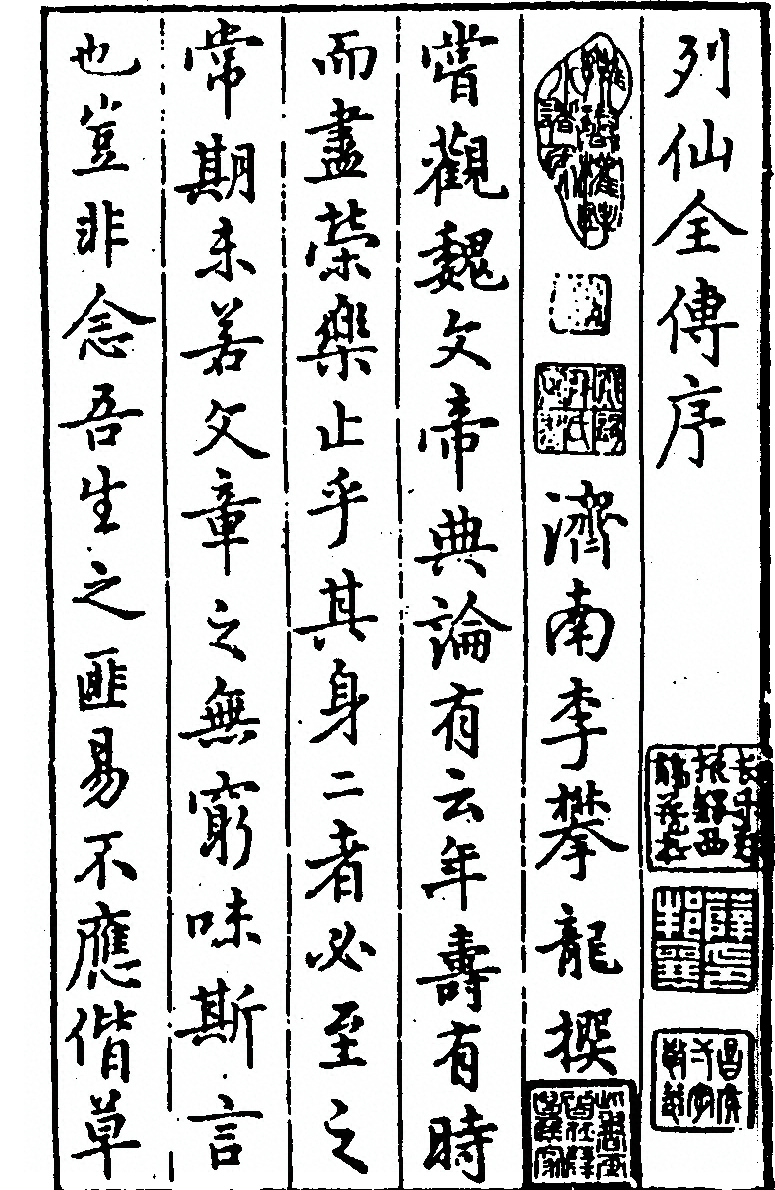 列仙全傳序
濟南李攀龍撰
嘗觀魏文帝典論有云年壽有時
而盡榮樂止乎其身二者必至之
常期未若文章之無窮味斯言
也豈非念吾生之匪易不應偕草